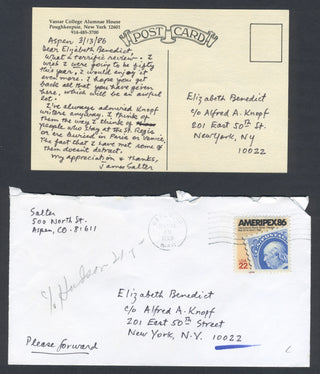 Vassar College Alumnae House
Poughkeepsie, New York 12601
914-485-3700
POST CARD
Aspen 3/13/86
Dear Elizabeth Benedict,
What a terrific review. I
wish I were going to be fifty
this year, I would enjoy it
even more. I hope you get
back all that you have given
here, which will be an awful
lot.
I've always admired Knopf
writers anyway. I think of
them the way I think of
people who stay at the St. Regis
or are buried in Paris or Venice.
The fact that I have met some of
them doesn't detract.
My appreciation & thanks,
James Salter
Elizabeth Benedict
c/o Alfred A. Knopf
201 East 50th St.
New York, NY
10022
Salter
500 North St.
Aspen, CO. 81611
c/o Hudson
AMERIPEX 86
USA
22
Elizabeth Benedict
c/o Alfred A. Knopf
201 East 50th Street
New York, N.Y. 10022
Please forward